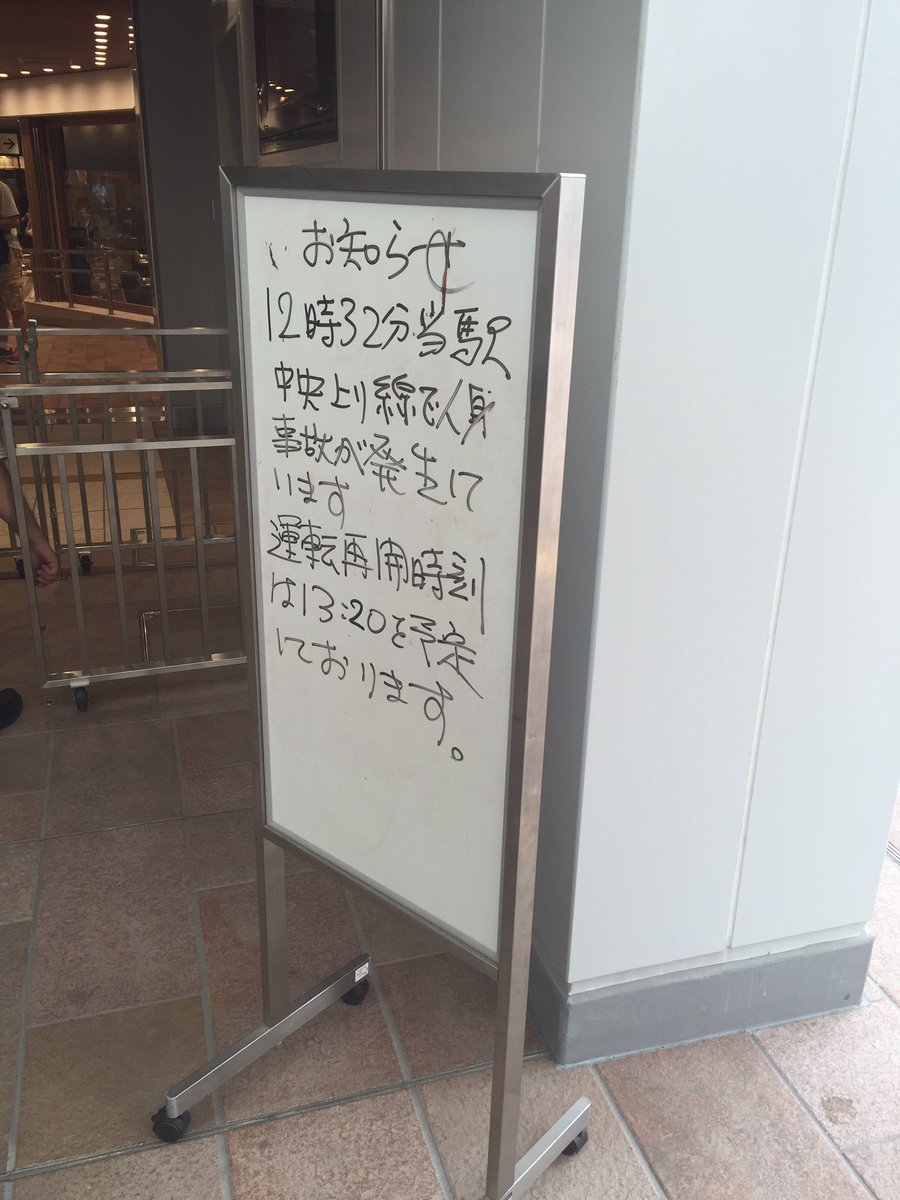 お知らせ
12時32分当駅
中央上り線で人身
事故が発生して
います
運転再開時刻
は13:20を予定
しております。